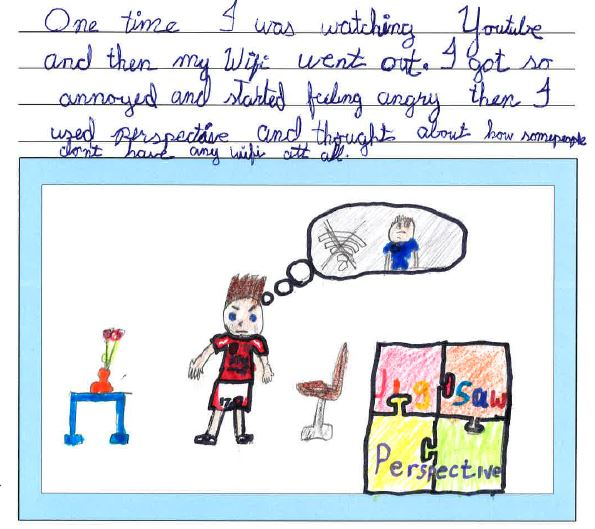 One time I was watching Youtube
and then my Wifi went out. I got so
annoyed and started feeling angry then I
used perspective and thought about how somepeople
dont have any wifi att all.
Jigsaw
Perspective